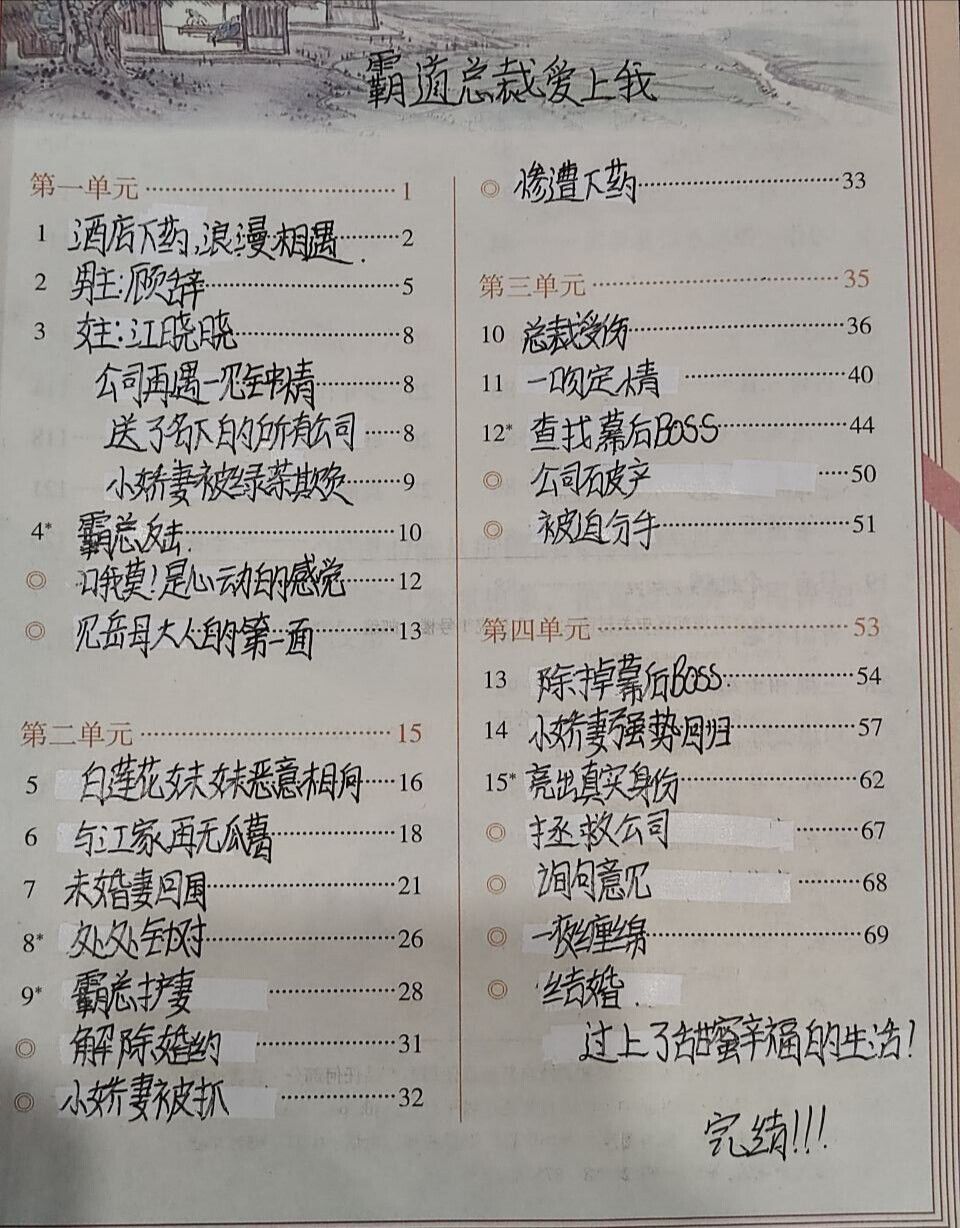 霸道总裁爱上我
第一单元 1
1 酒店下药,浪漫相遇 2
2 男主:顾辞 5
3 女主:江晓晓 8
公司再遇一见钟情 8
送了名下的所有公司 8
小娇妻被绿茶欺负 9
4* 霸总反击. 10
◎ 哦莫!是心动的感觉 12
◎ 见岳母大人的第一面 13
第二单元 15
5 白莲花妹妹恶意相向 16
6 与江家再无瓜葛 18
7 未婚妻回国 21
8* 处处针对 26
9* 霸总护妻 28
◎ 解除婚约 31
◎ 小娇妻被抓 32
◎ 惨遭下药 33
第三单元 35
10 总裁受伤 36
11 一吻定情 40
12* 查找幕后BOSS 44
◎ 公司破产 50
◎ 被迫分手 51
第四单元 53
13 除掉幕后BOSS. 54
14 小娇妻强势回归 57
15* 亮出真实身份 62
◎ 拯救公司 67
◎ 询问意见 68
◎ 一夜缠绵 69
◎ 结婚.
过上了甜蜜幸福的生活!
完结!!!